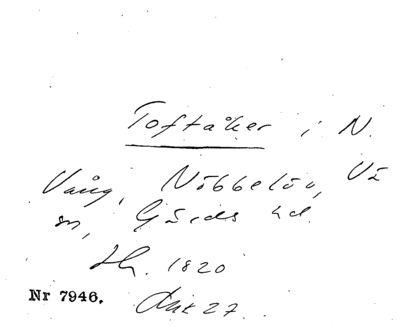 Toftåker i N.
Vång, Nöbbelöv, Vä
sn, Gärds hd.
1820
Nr 7946. Akt 27.